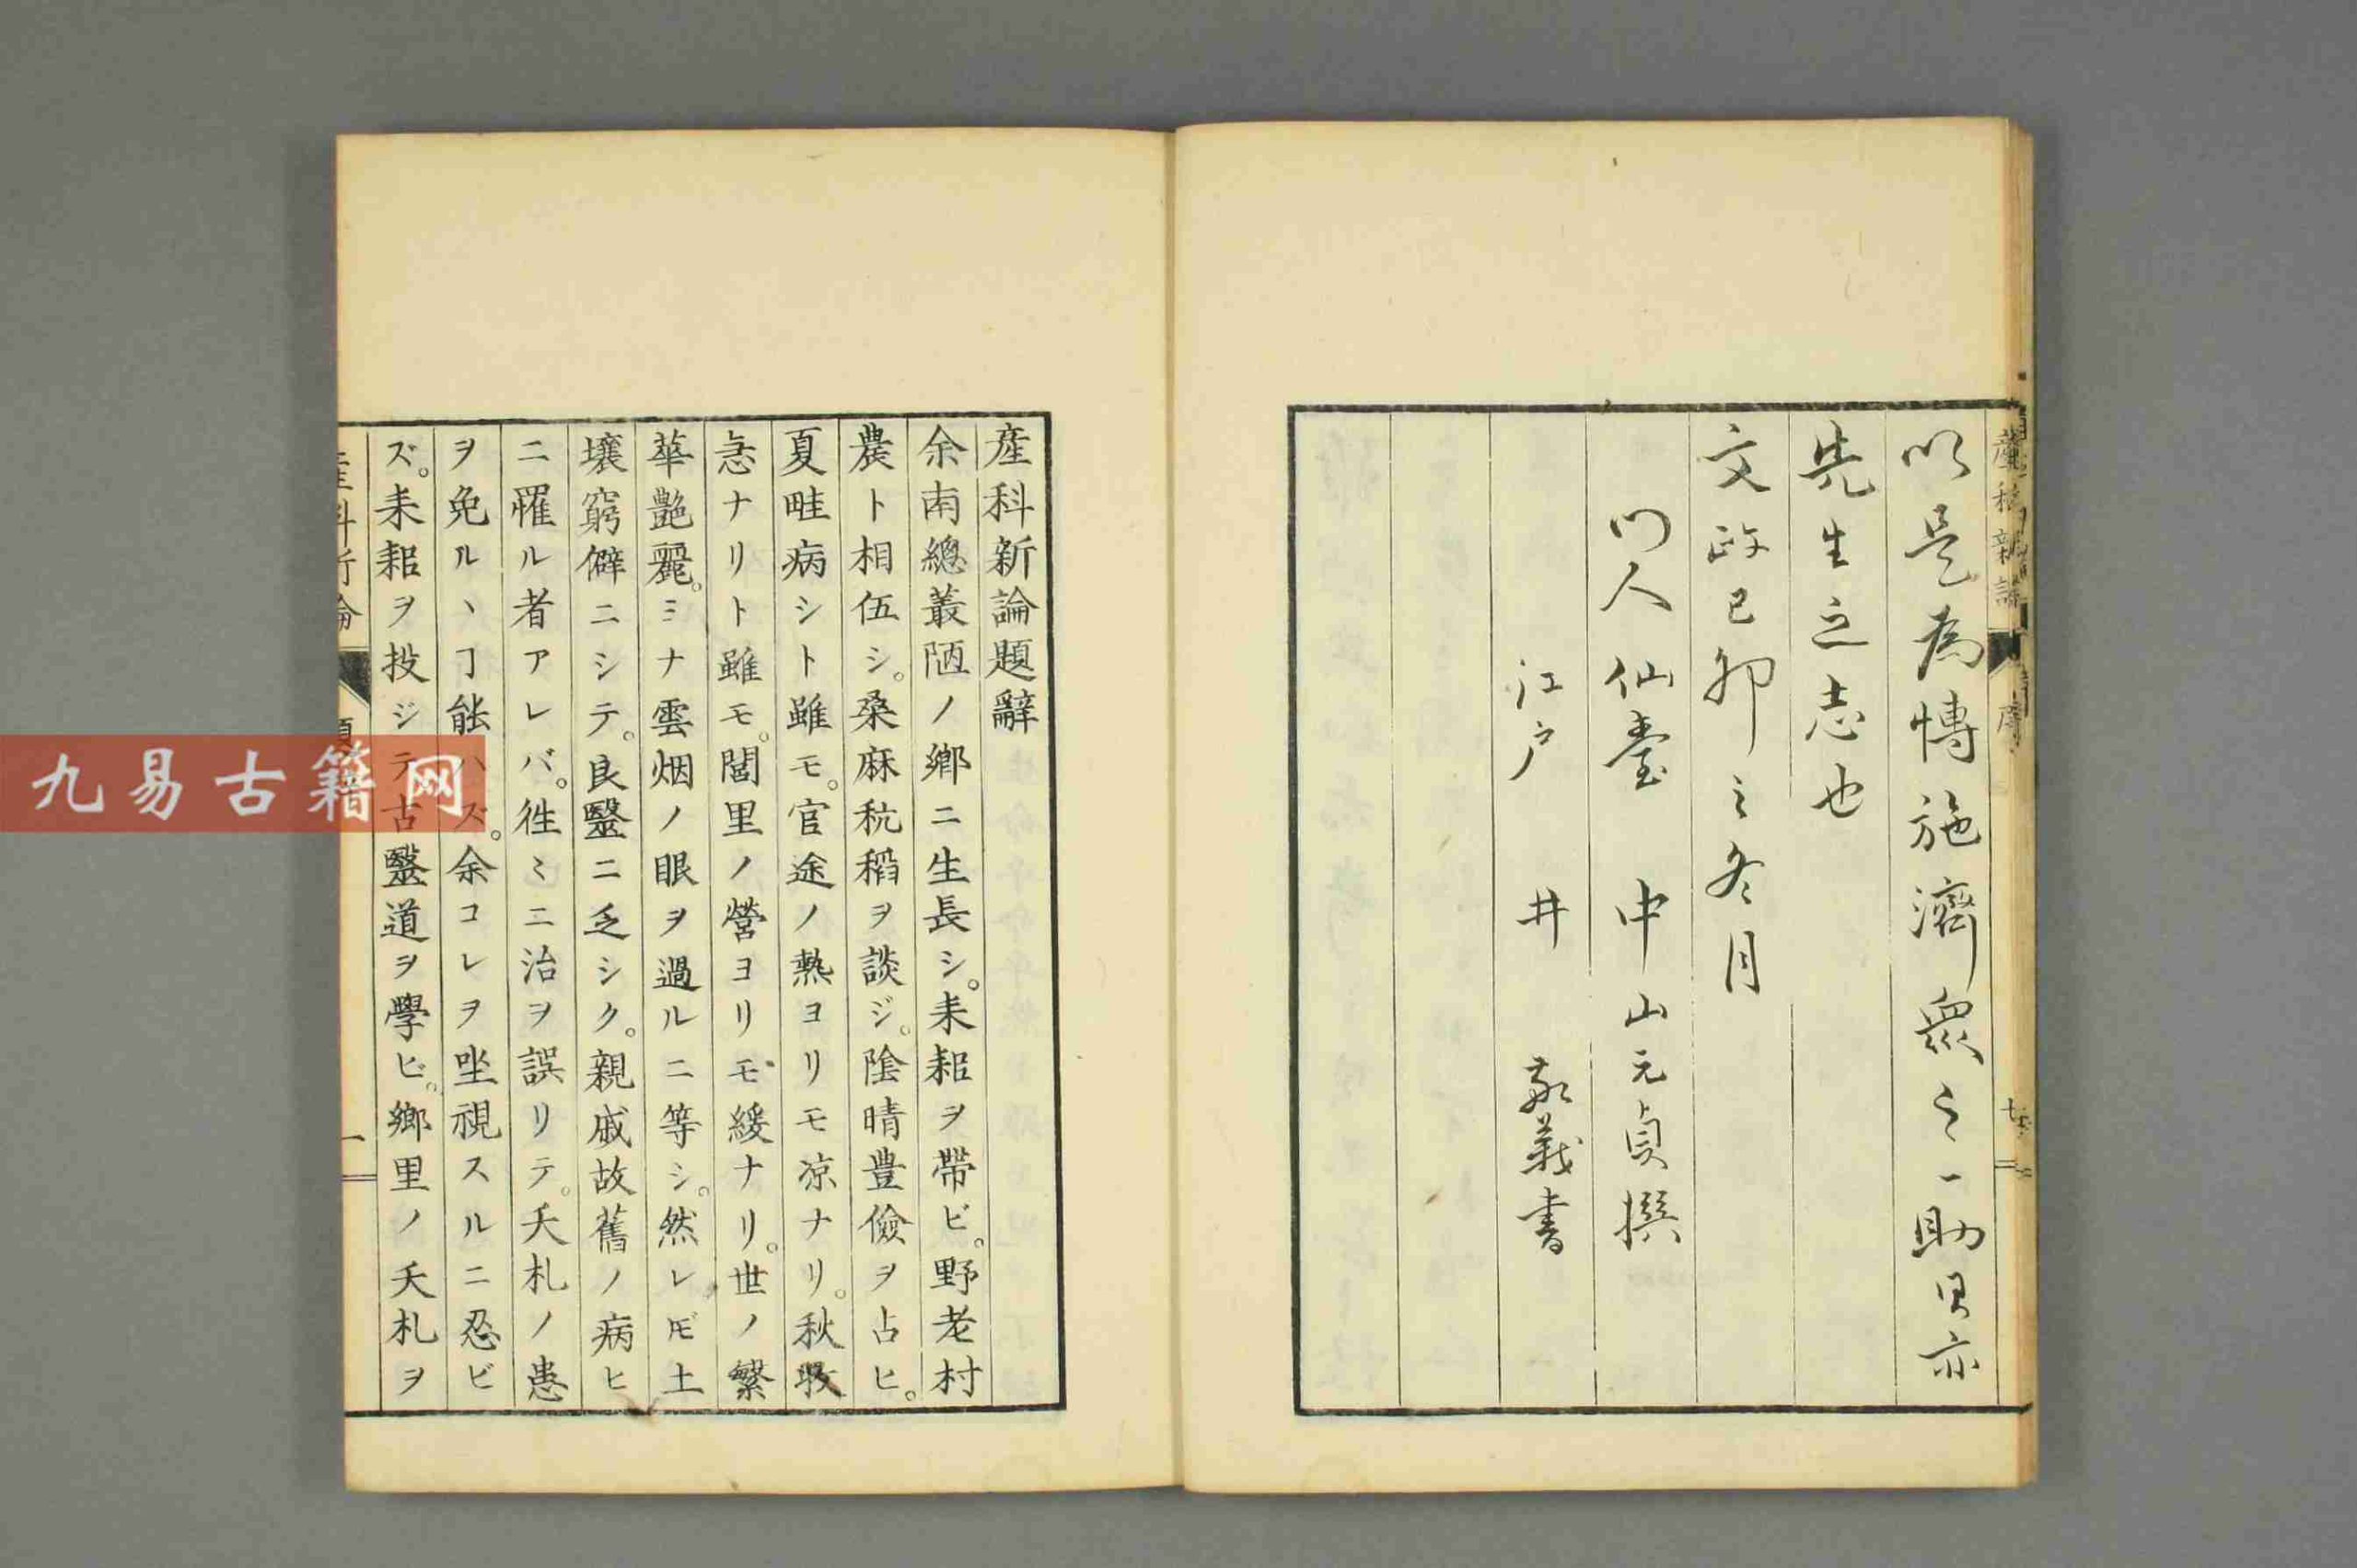 以是為博施濟眾之一助耳亦
先生之志也
文政己卯之冬月
門人仙臺 中山元貞撰
江戸 井 敬義書
産科新論 序
産科新論題辭
余南總叢陋ノ鄉ニ生長シ。耒耜ヲ帶ビ。野老村
農ト相伍シ。桑麻秔稻ヲ談ジ。陰晴豊儉ヲ占ヒ。
夏畦病シト雖モ。官途ノ熱ヨリモ凉ナリ。秋收
急ナリト雖モ。闠里ノ營ヨリモ緩ナリ。世ノ繁
華艶麗。ミナ雲烟ノ眼ヲ過ルニ等シ。然レ𪜈土
壤窮僻ニシテ。良醫ニ乏シク。親戚故舊ノ病ヒ
ニ罹ル者アレバ。徃〻ニ治ヲ誤リテ。夭札ノ患
ヲ免ルヽヿ能ハズ。余コレヲ坐視スルニ忍ビ
ズ。耒耜ヲ投ジテ古醫道ヲ學ビ。鄉里ノ夭札ヲ
産科新論 一
九易古籍网